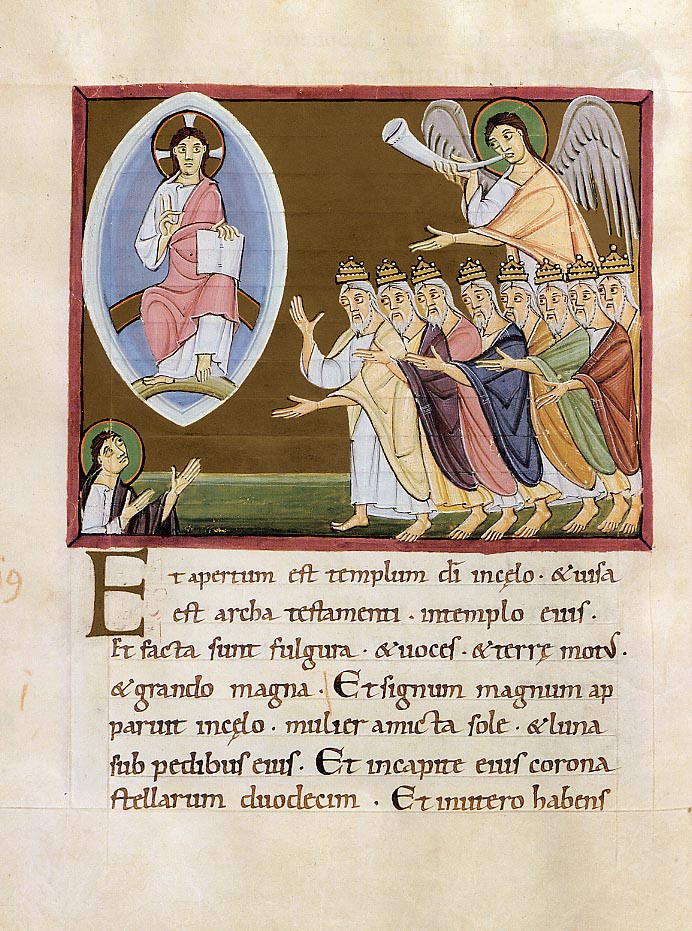 Et apertum est templum dī incęlo · &uisa
est archa testamenti · intemplo eius ·
Et facta sunt fulgura · &uoces · &terrę motus ·
&grando magna · Etsignum magnum ap
paruit incęlo · mulier amicta sole · &luna
sub pedibus eius · Et incapite eius corona
stellarum duodecim · Et inutero habens